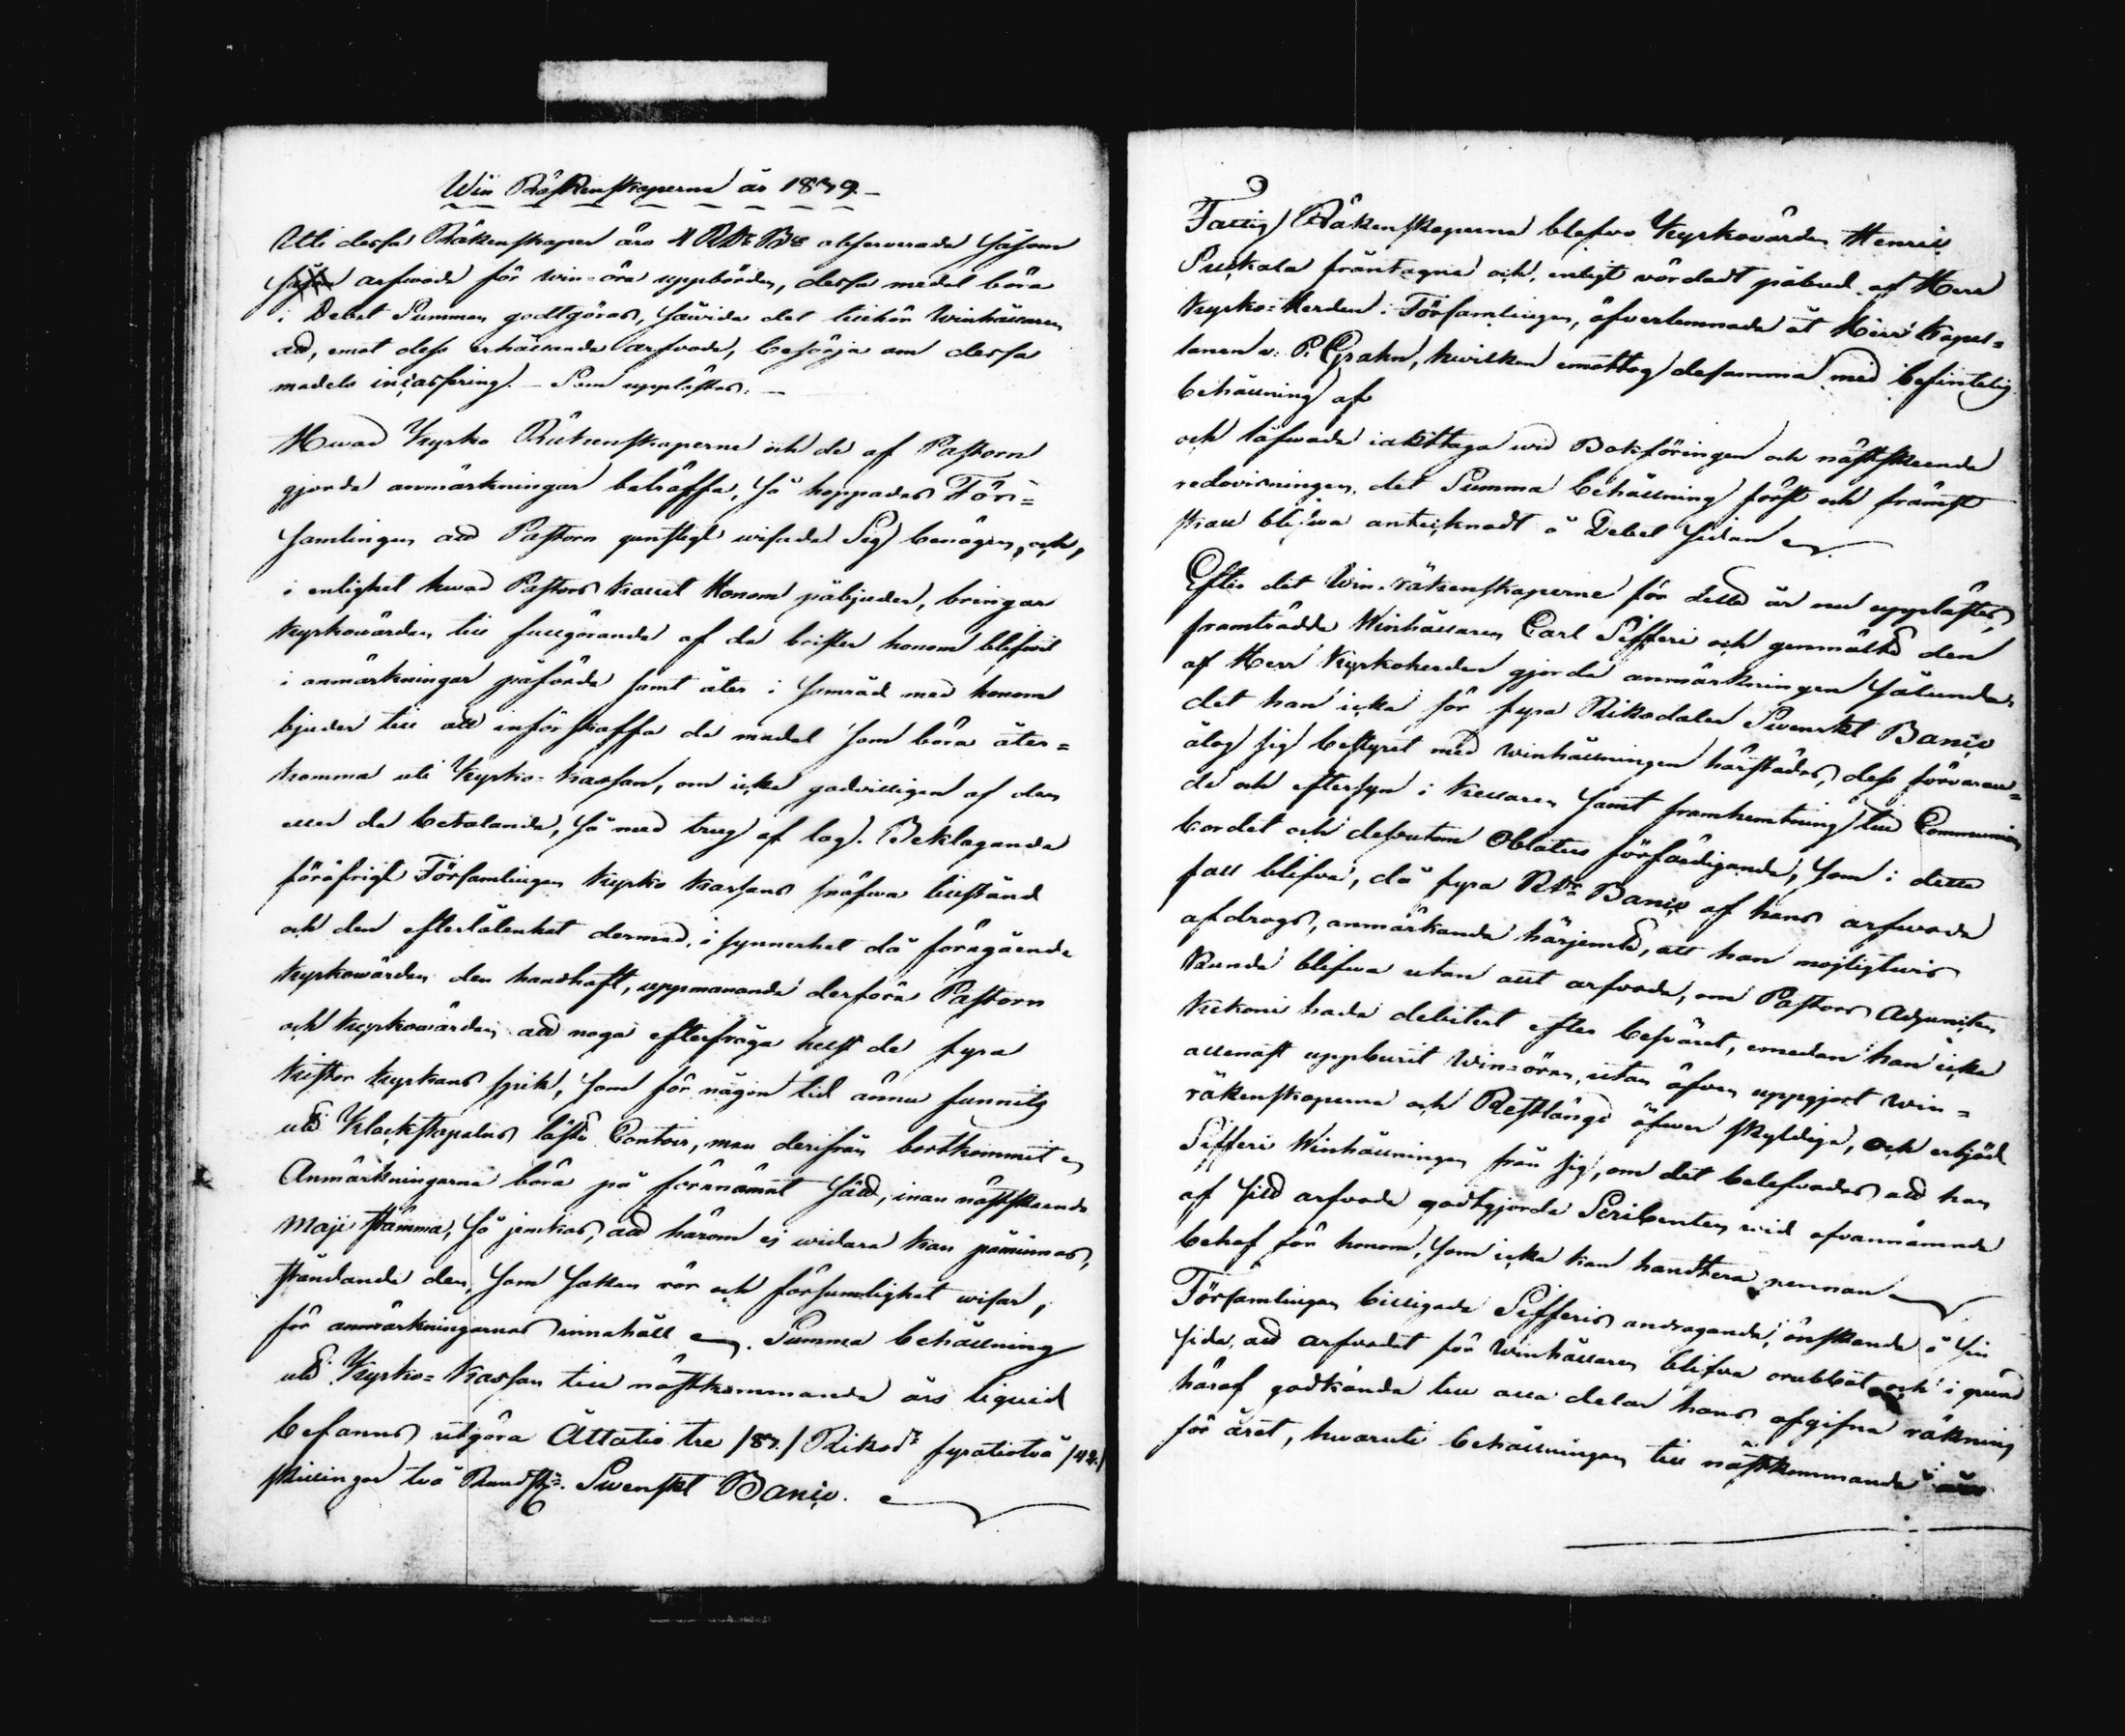 Win Räkenskaperne år 1839.
Uti dessa Räkenskaper äro 4 RDr Bco observerade såsom
arfwode för win-öre uppbörden, dessa medel böra
i Debet Summan godtgöras, såwida det tillhör Winhållaren
att, emot dess erhållande arfwode, besörja om dessa
medels incassering. – Som upplästes. –
Hwad Kyrko Räkenskaperne och de af Pastorn
gjorde anmärkningar beträffa, så hoppades För-
samlingen att Pastorn gunstigt wisade Sig benägen, och,
i enlighet hwad Pastors kallet Honom påbjuder, bringar
Kyrkowärden till fullgörande af de brister honom blefwit
i anmärkningar påförde samt åter i samråd med honom
bjuder till att införskaffa de medel som böra åter=
komma uti Kyrko=kassan, om icke godwilligen af den
eller de betalande, så med twg af lag. Beklagande
föröfrigt Församlingen Kyrko kassans swaga tillstånd
och den efterlåtenhet dermed, i synnerhet då föregående
Kyrkowärden den handhaft, uppmanande derföre Pastorn
och Kyrkowärden att noga efterfråga hellst de fyra
Kistor Kyrkans spik, som för någon tid ännu funnits
uti Klockstapelns låste Contoir, men derifrån bortkommit
Anmärkningarne böra på förenämnt sätt, innan nästskeende
Maji stämma, så jemkas, att härom ej widare kan påminnas,
ståndande den, som saken rör och försumlighet wisar,
för anmärkningarnes innehåll. Summa behållning
uti Kyrko=Kassan till nästkommande års liquid
befanns utgöra Åttatio tre /83./ Riksdr fyratiotvå /42./
skillingar två Rundst. Swenskt Banco.
Fattig Räkenskaperna blefwo Kyrkovärden Henric
Puskala fråntagne och, enligt vördadt påbud af Herr
Kyrko=Herden i Församlingen, öfverlemnade åt Herr Kapel=
lanen v. P. Grahn, hwilken emottog desamma med befintelig
behållning af
och låfwade iakttaga wid Bokföringen och nästskeende
redovisningen, det Summa behållning först och främst
skall blifwa antecknadt å Debet sidan
Efter det Win-räkenskaperne för detta år nu upplästes,
framträdde Winhållaren Carl Sifferi och genmälte den
af Herr Kyrkoherden gjorde anmärkningen sålunda,
det han icke för fyra Riksdaler Swenskt Banco
åtog sig bestyret med winhållningen härstädes, dess förvaran=
de och eftersyn i Kellaren samt framhemtning till Communion
bordet och dessutom Oblaters förfärdigande, som i detta
fall blifva, då fyra RDr Banco af hans arfwode
afdrogs, anmärkande härjemte, att han mojligtwis
kunde blifwa utan allt arfvode, om Pastors Adjuncten
Kekoni hade debitert efter besväret, emedan han icke
allenast uppburit Win-ören, utan äfven uppgjort Win=
räkenskaperne och Restlängd öfwer skyldige, och erbjöd
Sifferi Winhållningen från sig, om det belefvades att han
af sitt arfvode godtgjorde Scribenten vid ofvannämnde
behof för honom, som icke kan handtera pennan
Församlingen billigade Sifferis andragande, önskande å sin
sida, att arfvodet för Winhållaren blifva orubbat och i grund
häraf godkände till alla delar hans afgifna räkning
för året, hwaruti behållningen till nästkommande år